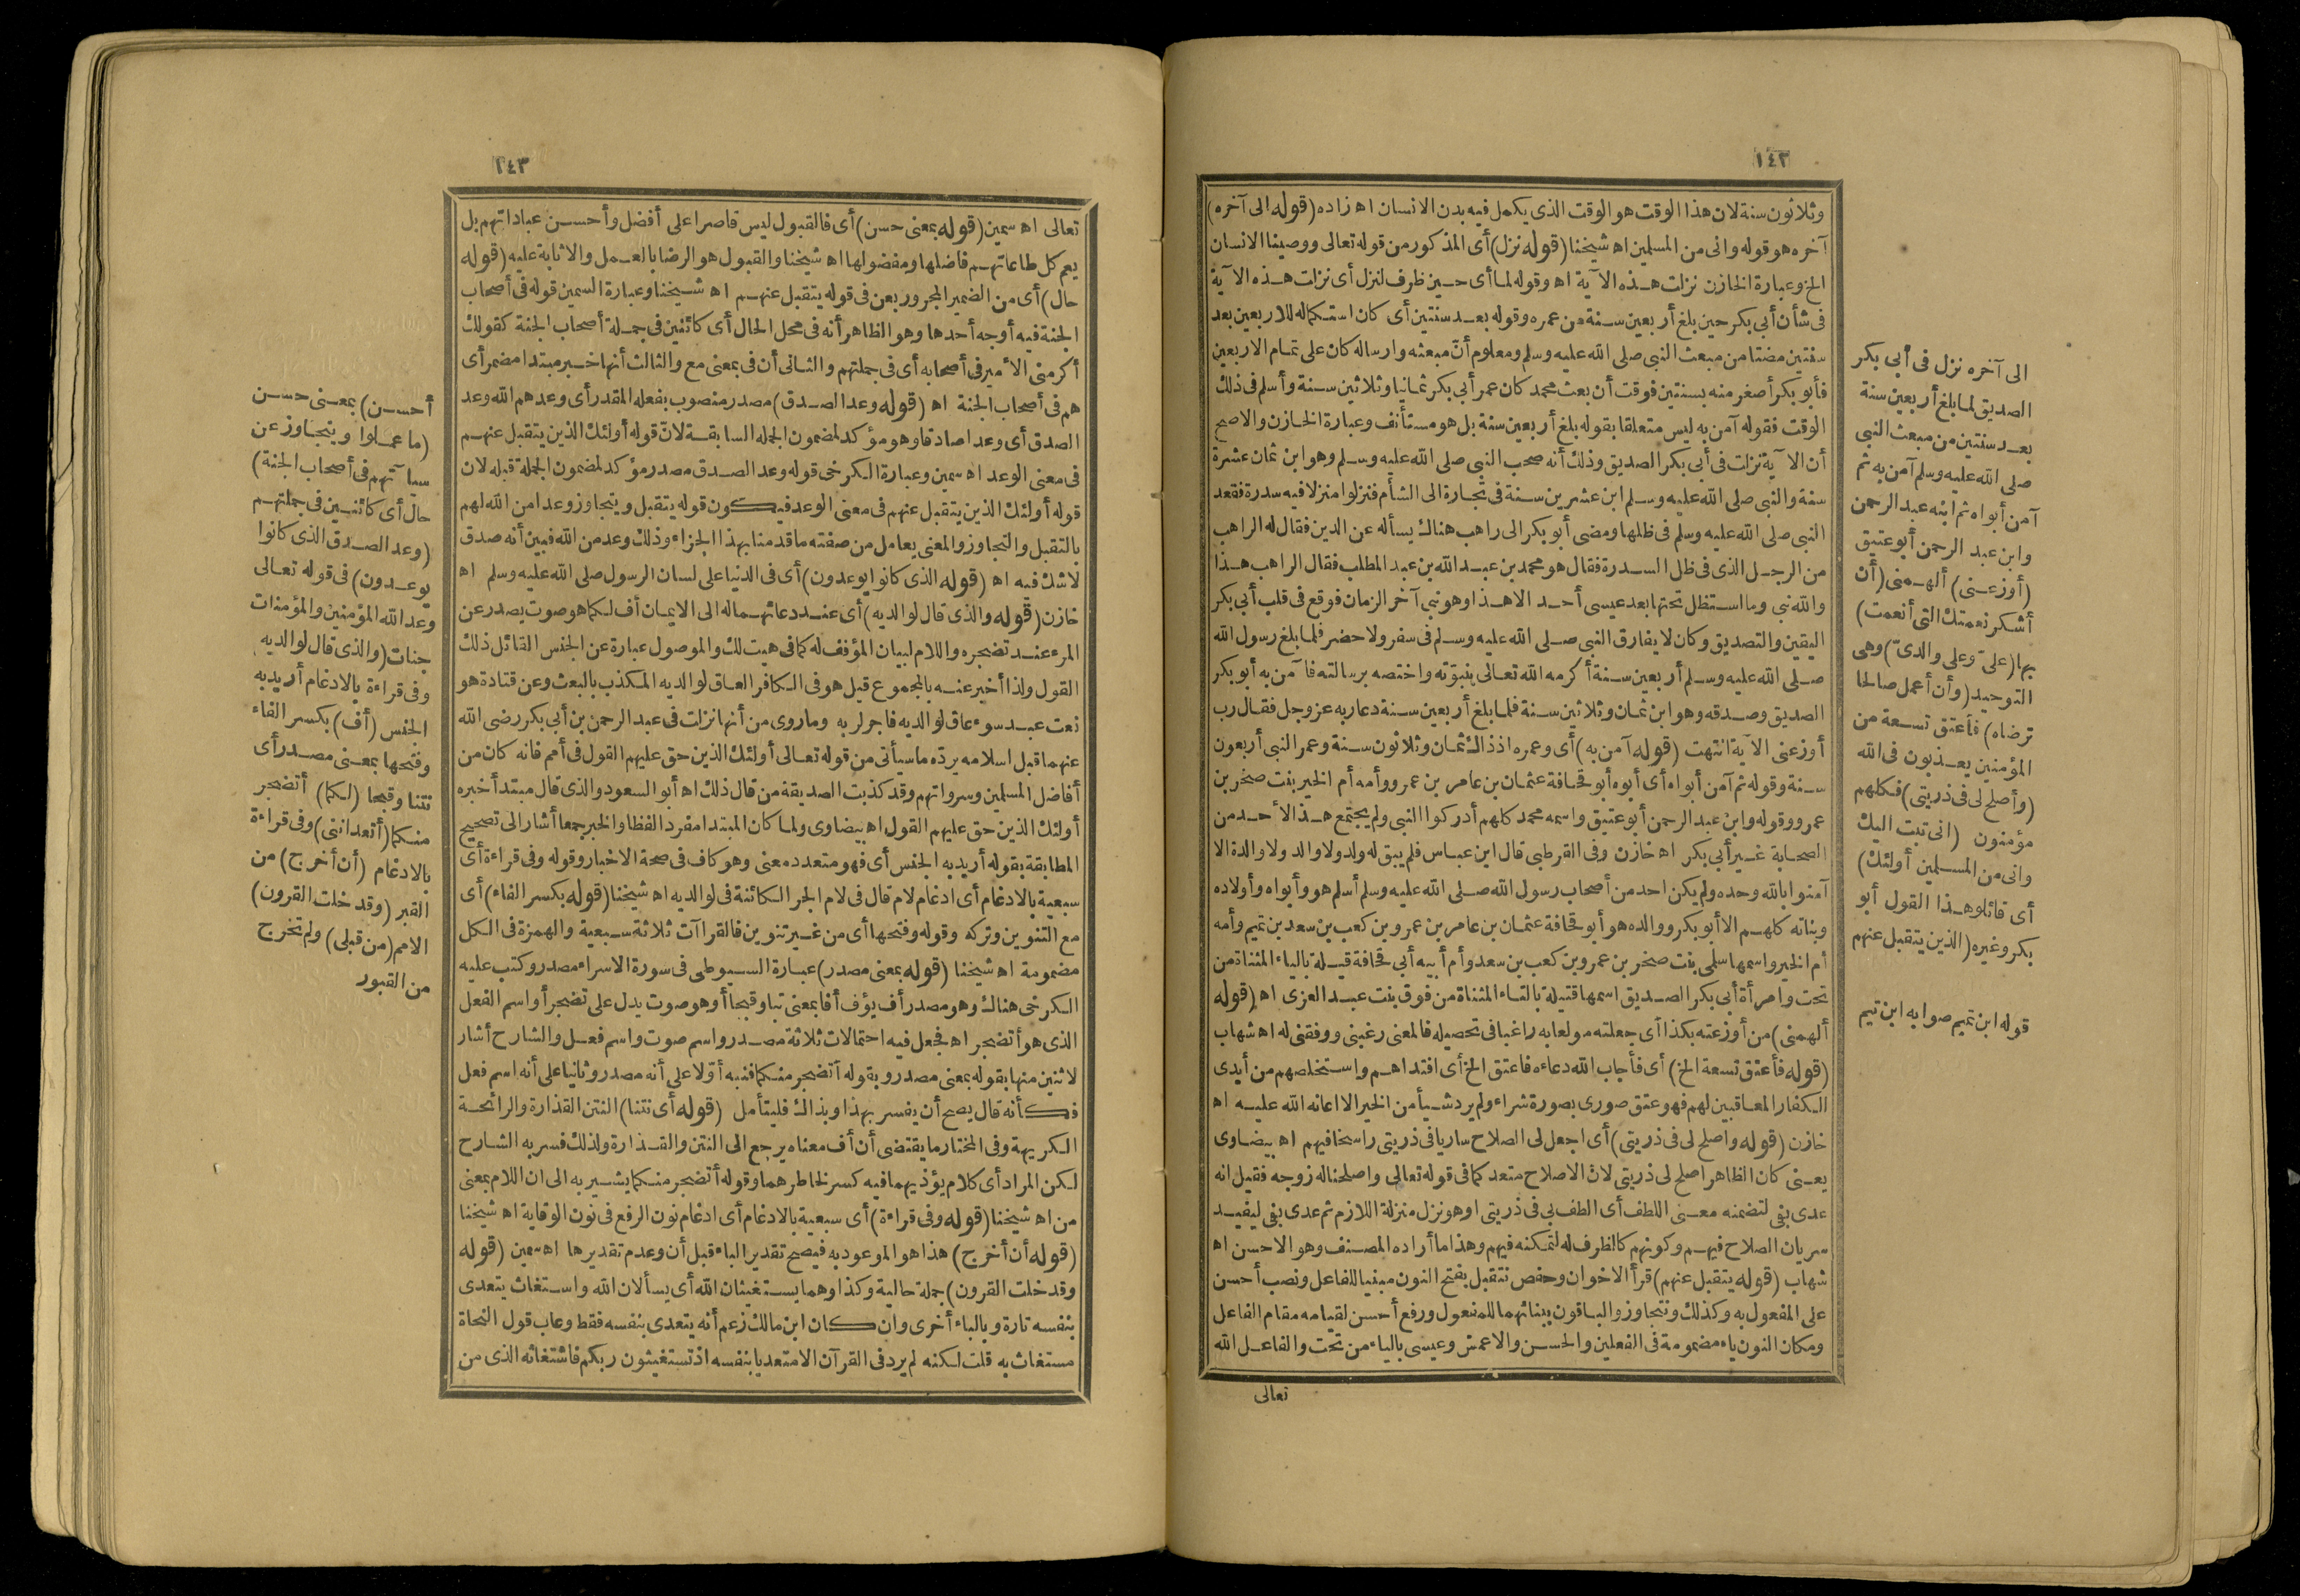 ١٤٢
وثلاثون سنة لان هذا الوقت هو الوقت الذى يكمل فيه بدن الانسان اه زاده (قوله الى آخره)
آخره هو قوله وانى من المسلمين اه شيخنا (قوله نزل) أى المذكور من قوله تعالى ووصينا الانسان
الخ وعبارة الخازن نزلت هذه الآية اه وقوله لما أى حين ظرف لنزل أى نزلت هذه الآية
فى شأن أبى بكر حين بلغ أربعين سنة من عمره وقوله بعد سنتين أى كان استكماله للاربعين بعد
سنتين مضتا من مبعث النبى صلى الله عليه وسلم ومعلوم أنّ مبعثه وارساله كان على تمام الاربعين
فأبو بكر أصغر منه بسنتين فوقت أن بعث محمد كان عمر أبى بكر ثمانيا وثلاثين سنة وأسلم فى ذلك
الوقت فقوله آمن به ليس متعلقا بقوله بلغ أربعين سنة بل هو مستأنف وعبارة الخازن والاصح
أن الآية نزلت فى أبى بكر الصديق وذلك أنه صحب النبى صلى الله عليه وسلم وهو ابن ثمان عشرة
سنة والنبى صلى الله عليه وسلم ابن عشرين سنة فى تجارة الى الشأم فنزلوا منزلا فيه سدرة فقعد
النبى صلى الله عليه وسلم فى ظلها ومضى أبو بكر الى راهب هناك يسأله عن الدين فقال له الراهب
من الرجل الذى فى ظل السدرة فقال هو محمد بن عبد الله بن عبد المطلب فقال الراهب هذا
والله نبى وما استظل تحتها بعد عيسى أحد الا هذا وهو نبى آخر الزمان فوقع فى قلب أبى بكر
اليقين والتصديق وكان لا يفارق النبى صلى الله عليه وسلم فى سفر ولا حضر فلما بلغ رسول الله
صلى الله عليه وسلم أربعين سنة أكرمه الله تعالى بنبوّته واختصه برسالته فآمن به أبو بكر
الصديق وصدقه وهو ابن ثمان وثلاثين سنة فلما بلغ أربعين سنة دعا ربه عز وجل فقال رب
أوزعنى الآية انتهت (قوله آمن به) أى وعمره اذ ذاك ثمان وثلاثون سنة وعمر النبى أربعون
سنة وقوله ثم آمن أبواه أى أبوه أبو قحافة عثمان بن عامر بن عمرو وأمه أم الخير بنت صخر بن
عمرو وقوله وابن عبد الرحمن أبو عتيق واسمه محمد كلهم أدركوا النبى ولم يجتمع هذا لأحد من
الصحابة غير أبى بكر اه خازن وفى القرطبى قال ابن عباس فلم يبق له ولد ولا والد ولا والدة الا
آمنوا بالله وحده ولم يكن احد من أصحاب رسول الله صلى الله عليه وسلم أسلم هو وأبواه وأولاده
وبناته كلهم الا أبو بكر ووالده هو أبو قحافة عثمان بن عامر بن عمرو بن كعب بن سعد بن تميم وأمه
أم الخير واسمها سلمى بنت صخر بن عمرو بن كعب بن سعد وأم أبيه أبى قحافة قيلة بالياء المثناة من
تحت وامرأة أبى بكر الصديق اسمها قتيلة بالتاء المثناة من فوق بنت عبد العزى اه (قوله
ألهمنى) من أوزعته بكذا أى جعلته مولعا به راغبا فى تحصيله فالمعنى رغبنى ووفقنى له اه شهاب
(قوله فأعتق تسعة الخ) أى فأجاب الله دعاءه فاعتق الخ أى افتداهم واستخلصهم من أيدى
الكفار المعاقبين لهم فهو عتق صورى بصورة شراء ولم يرد شيأ من الخير الا اعانه الله عليه اه
خازن (قوله واصلح لى فى ذريتى) أى اجعل لى الصلاح ساريا فى ذريتى راسخا فيهم اه بيضاوى
يعنى كان الظاهر اصلح لى ذريتى لان الاصلاح متعد كما فى قوله تعالى واصلحنا له زوجه فقيل انه
عدى بفى لتضمنه معنى اللطف أى الطف بى فى ذريتى او هو نزل منزلة اللازم ثم عدى بفى ليفيد
سريان الصلاح فيهم وكونهم كالظرف له لتمكنه فيهم وهذا ما أراده المصنف وهو الاحسن اه
شهاب (قوله يتقبل عنهم) قرأ الاخوان وحفص نتقبل بفتح النون مبنيا للفاعل ونصب أحسن
على المفعول به وكذلك ونتجاوز والباقون ببنائهما للمفعول ورفع أحسن لقيامه مقام الفاعل
ومكان النون ياء مضمومة فى الفعلين والحسن والاعمش وعيسى بالياء من تحت والفاعل الله
تعالى
الى آخره نزل فى أبى بكر
الصديق لما بلغ أربعين سنة
بعد سنتين من مبعث النبى
صلى الله عليه وسلم آمن به ثم
آمن أبواه ثم ابنه عبد الرحمن
وابن عبد الرحمن أبو عتيق
(أوزعنى) ألهمنى (أن
أشكر نعمتك التى أنعمت)
بها (علىّ وعلى والدىّ) وهى
التوحيد (وأن أعمل صالحا
ترضاه) فأعتق تسعة من
المؤمنين يعذبون فى الله
(وأصلح لى فى ذريتى) فكلهم
مؤمنون (انى تبت اليك
وانى من المسلمين أولئك)
أى قائلو هذا القول أبو
بكر وغيره (الذين يتقبل عنهم
قوله ابن تميم صوابه ابن تيم
١٤٣
تعالى اه سمين (قوله بمعنى حسن) أى فالقبول ليس قاصرا على أفضل وأحسن عباداتهم بل
يعم كل طاعاتهم فاضلها ومفضولها اه شيخنا والقبول هو الرضا بالعمل والاثابة عليه (قوله
حال) أى من الضمير المجرور بعن فى قوله يتقبل عنهم اه شيخنا وعبارة السمين قوله فى أصحاب
الجنة فيه أوجه أحدها وهو الظاهر أنه فى محل الحال أى كائنين فى جملة أصحاب الجنة كقولك
أكرمنى الأمير فى أصحابه أى فى جملتهم والثانى أن فى بمعنى مع والثالث أنها خبر مبتدا مضمر أى
هم فى أصحاب الجنة اه (قوله وعد الصدق) مصدر منصوب بفعله المقدر أى وعدهم الله وعد
الصدق أى وعدا صادقا وهو مؤكد لمضمون الجملة السابقة لانّ قوله أولئك الذين يتقبل عنهم
فى معنى الوعد اه سمين وعبارة الكرخى قوله وعد الصدق مصدر مؤكد لمضمون الجملة قبله لان
قوله أولئك الذين يتقبل عنهم فى معنى الوعد فيكون قوله يتقبل ويتجاوز وعدا من الله لهم
بالتقبل والتجاوز والمعنى يعامل من صفته ما قدمنا بهذا الجزاء وذلك وعد من الله فبين أنه صدق
لا شك فيه اه (قوله الذى كانوا يوعدون) أى فى الدنيا على لسان الرسول صلى الله عليه وسلم اه
خازن (قوله والذى قال لوالديه) أى عند دعائهما له الى الايمان أف لكما هو صوت يصدر عن
المرء عند تضجره واللام لبيان المؤفف له كما فى هيت لك والموصول عبارة عن الجنس القائل ذلك
القول ولذا أخبر عنه بالمجموع قيل هو فى الكافر العاق لوالديه المكذب بالبعث وعن قتادة هو
نعت عبد سوء عاق لوالديه فاجر لربه وما روى من أنها نزلت فى عبد الرحمن بن أبى بكر رضى الله
عنهما قبل اسلامه يردّه ما سيأتى من قوله تعالى أولئك الذين حق عليهم القول فى أمم فانه كان من
أفاضل المسلمين وسرواتهم وقد كذبت الصديقة من قال ذلك اه أبو السعود والذى قال مبتدأ خبره
أولئك الذين حق عليهم القول اه بيضاوى ولما كان المبتدا مفردا لفظا والخبر جمعا أشار الى تصحيح
المطابقة بقوله أريد به الجنس أى فهو متعدد معنى وهو كاف فى صحة الاخبار وقوله وفى قراءة أى
سبعية بالادغام أى ادغام لام قال فى لام الجر الكائنة فى لوالديه اه شيخنا (قوله بكسر الفاء) أى
مع التنوين وتركه وقوله وفتحها أى من غير تنوين فالقراآت ثلاثة سبعية والهمزة فى الكل
مضمومة اه شيخنا (قوله بمعنى مصدر) عبارة السيوطى فى سورة الاسراء مصدر وكتب عليه
الكرخى هناك وهو مصدر أف يؤف أفا بمعنى تبا وقبحا أو هو صوت يدل على تضجر أو اسم الفعل
الذى هو أتضجر اه فجعل فيه احتمالات ثلاثة مصدر واسم صوت واسم فعل والشارح أشار
لاثنين منها بقوله بمعنى مصدر وبقوله أتضجر منكما فنبه أوّلا على أنه مصدر وثانيا على أنه اسم فعل
فكأنه قال يصح أن يفسر بهذا وبذاك فليتأمل (قوله أى نتنا) النتن القذارة والرائحة
الكريهة وفى المختار ما يقتضى أن أف معناه يرجع الى النتن والقذارة ولذلك فسر به الشارح
لكن المراد أى كلام يؤذيهما فيه كسر لخاطرهما وقوله أتضجر منكما يشير به الى ان اللام بمعنى
من اه شيخنا (قوله وفى قراءة) أى سبعية بالادغام أى ادغام نون الرفع فى نون الوقاية اه شيخنا
(قوله أن أخرج) هذا هو الموعود به فيصح تقدير الباء قبل أن وعدم تقديرها اه سمين (قوله
وقد خلت القرون) جملة حالية وكذا وهما يستغيثان الله أى يسألان الله واستغاث يتعدى
بنفسه تارة وبالباء أخرى وان كان ابن مالك زعم أنه يتعدى بنفسه فقط وعاب قول النحاة
مستغاث به قلت لكنه لم يرد فى القرآن الا متعديا بنفسه اذ تستغيثون ربكم فاستغاثه الذى من
أحسن) بمعنى حسن
(ما عملوا ويتجاوز عن
سيآتهم فى أصحاب الجنة)
حال أى كائنين فى جملتهم
(وعد الصدق الذى كانوا
يوعدون) فى قوله تعالى
وعد الله المؤمنين والمؤمنات
جنات (والذى قال لوالديه)
وفى قراءة بالادغام أريد به
الجنس (أف) بكسر الفاء
وفتحها بمعنى مصدر أى
نتنا وقبحا (لكما) أتضجر
منكما (أتعداننى) وفى قراءة
بالادغام (أن أخرج) من
القبر (وقد خلت القرون)
الامم (من قبلى) ولم تخرج
من القبور